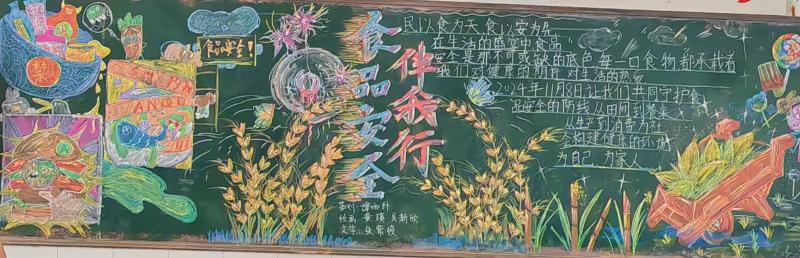 禁
食品安全!
食品安全
伴我行
民以食为天 食以安为先
在生活的盛宴中食品
安全是那不可或缺的底色 每一口食物都承载着
我们对健康的期许 对生活的热爱
2024年11月8日 让我们共同守护食
品安全的防线 从田间到餐桌
从生产到消费 为社
会构建健康的环境
为自己 为家人
策划:
绘画 黄瑛 吴新欣
文字:朱紫